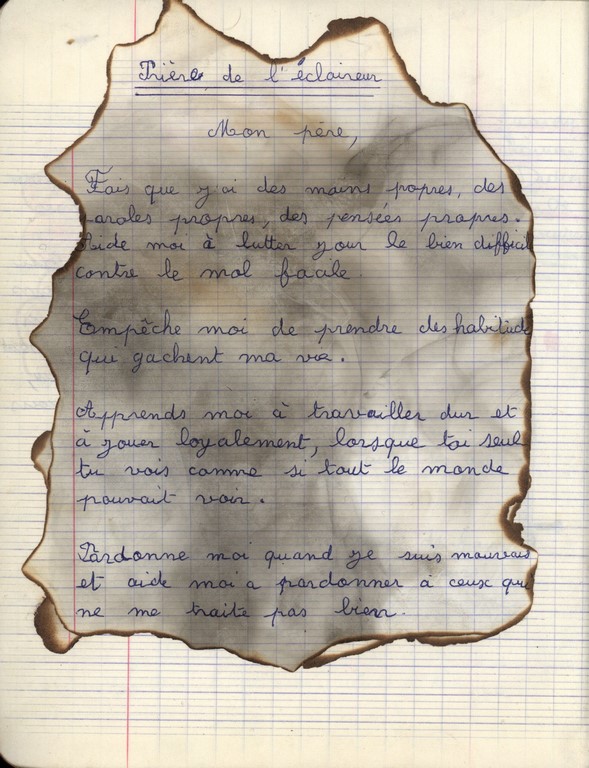 Prière de l'éclaireur
Mon père,
Fais que j'ai des mains popres, des
paroles propres, des pensées propres.
Aide moi à lutter pour le bien difficil
contre le mal facile.
Empêche moi de prendre des habitud
qui gachent ma vie.
Apprends moi à travailler dur et
à jouer loyalement, lorsque toi seul
tu vois comme si tout le monde
pouvait voir.
Pardonne moi quand je suis mauvais
et aide moi a pardonner à ceux qui
ne me traite pas bien.